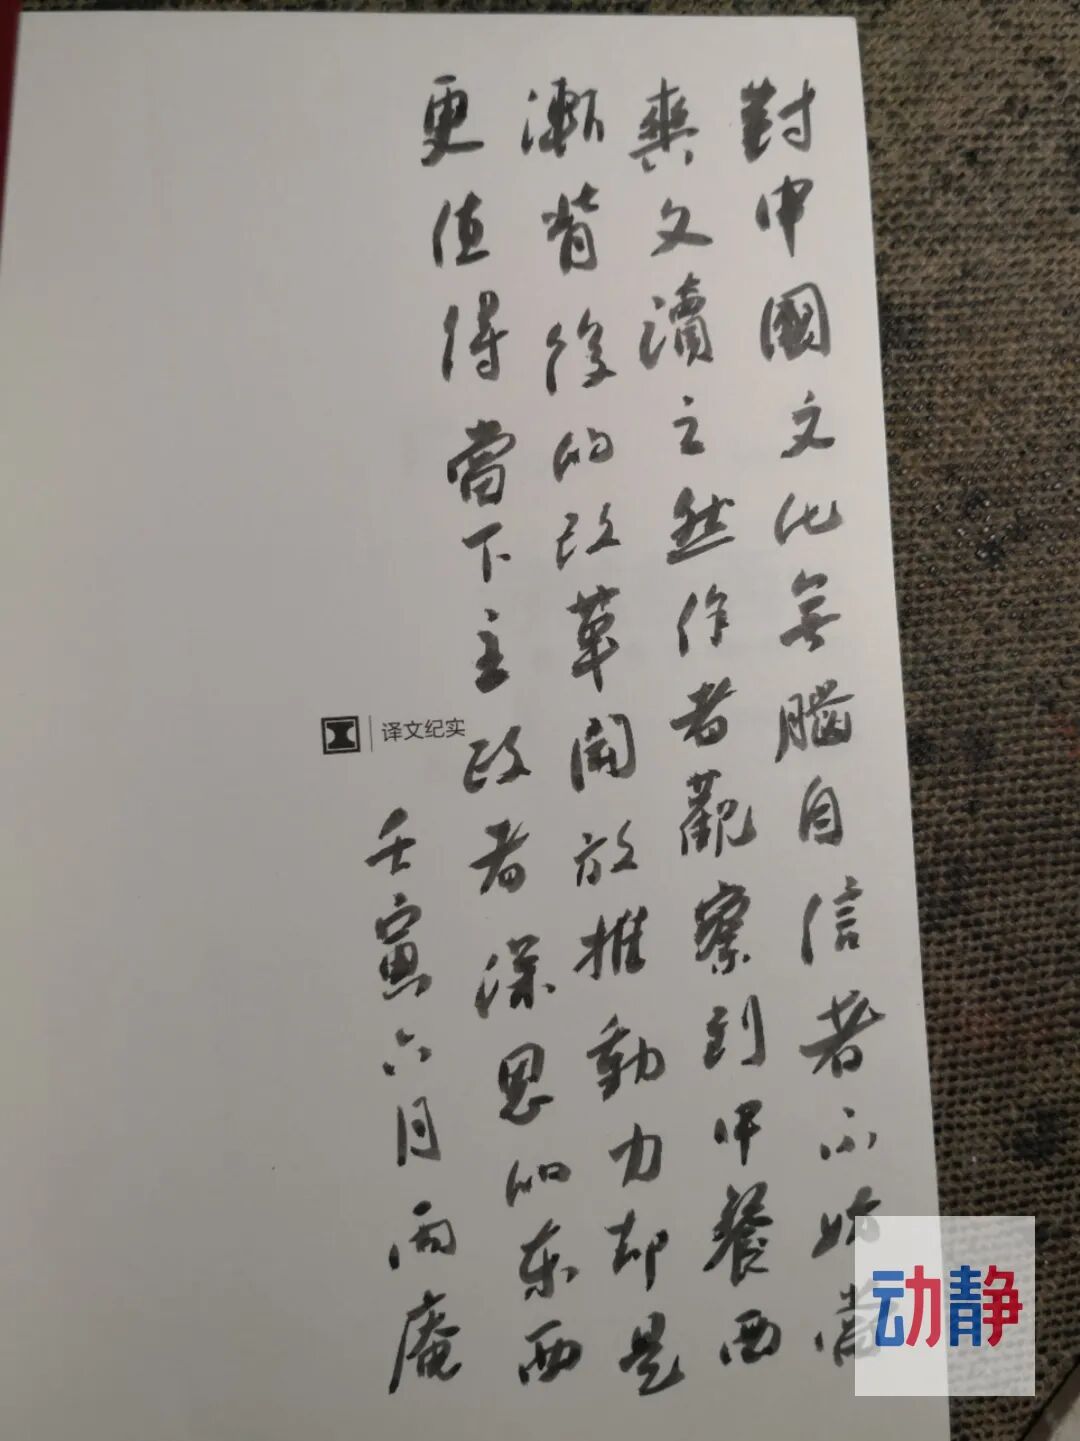 對中國文化無腦自信者不妨當
爽文讀之然作者觀察到中餐西
漸背後的改革開放推動力却是
更值得當下主政者深思的东西
壬寅六月雨庵
译文纪实
动静